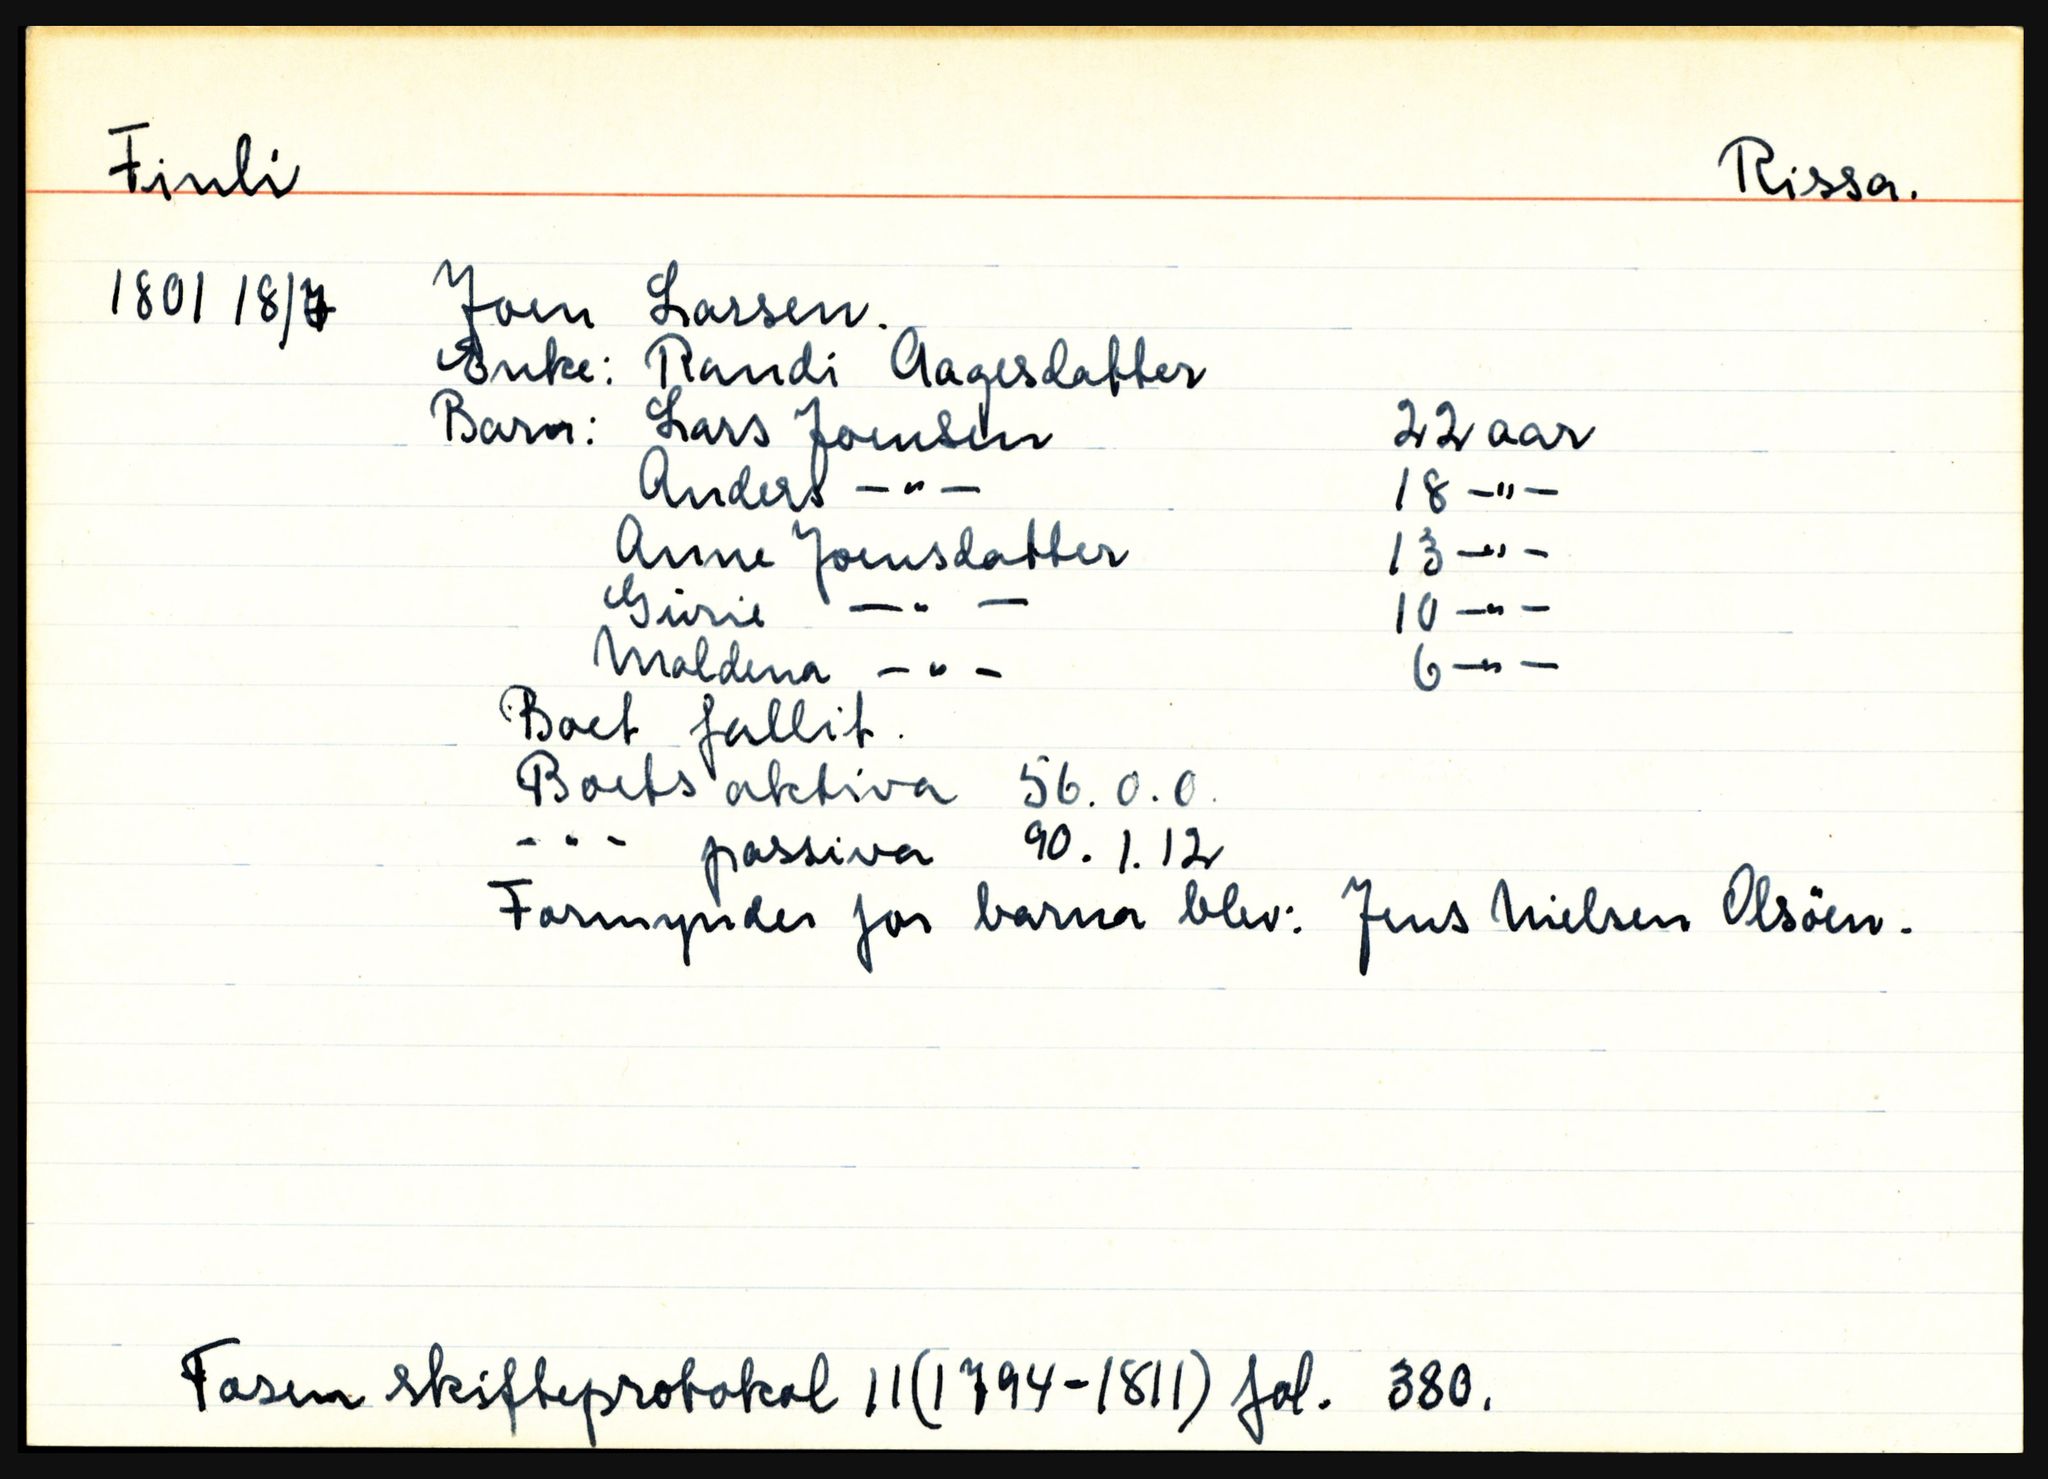 Finli Rissa.
1801 18/7 Joen Larsen.
Enke: Randi Aagesdatter
Barn: Lars Joensen 22 aar
Anders —"— 18 —"—
Anne Joensdatter 13 —"—
Gurie —"— 10 —"—
Maldena —"— 6 —"—
Boet fallit.
Boets aktiva 56. 0. 0.
-"- passiva 90. 1. 12
Formynder for barna blev: Jens Nielsen Olsöen.
Fosen skifteprotokol 11 (1794-1811) fol. 380.